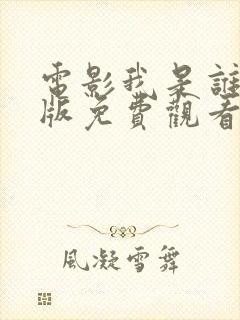 電影我是誰
版免費觀看
風凝雪舞